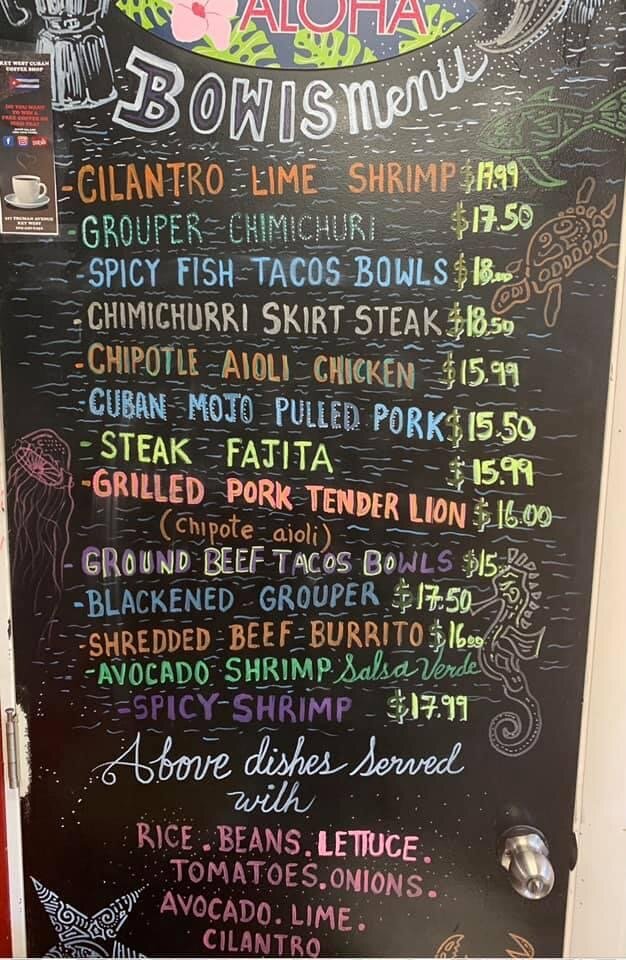 ALOHA
BOWlS menu
KEY WEST CUBAN
COFFEE SHOP
DO YOU WANT
TO WIN A
FREE COFFEE OR
-CILANTRO LIME SHRIMP $17.99
-GROUPER CHIMICHURI $17.50
-SPICY FISH TACOS BOWLS $18.00
-CHIMICHURRI SKIRT STEAK $18.50
-CHIPOTLE AIOLI CHICKEN $15.99
-CUBAN MOJO PULLED PORK $15.50
-STEAK FAJITA $15.99
-GRILLED PORK TENDER LION $16.00
(chipote aioli)
-GROUND BEEF TACOS BOWLS $15
-BLACKENED GROUPER $17.50
-SHREDDED BEEF BURRITO $16.00
-AVOCADO SHRIMP Salsa Verde
-SPICY SHRIMP $17.99
Above dishes served
with
RICE. BEANS. LETTUCE.
TOMATOES. ONIONS.
AVOCADO. LIME.
CILANTRO